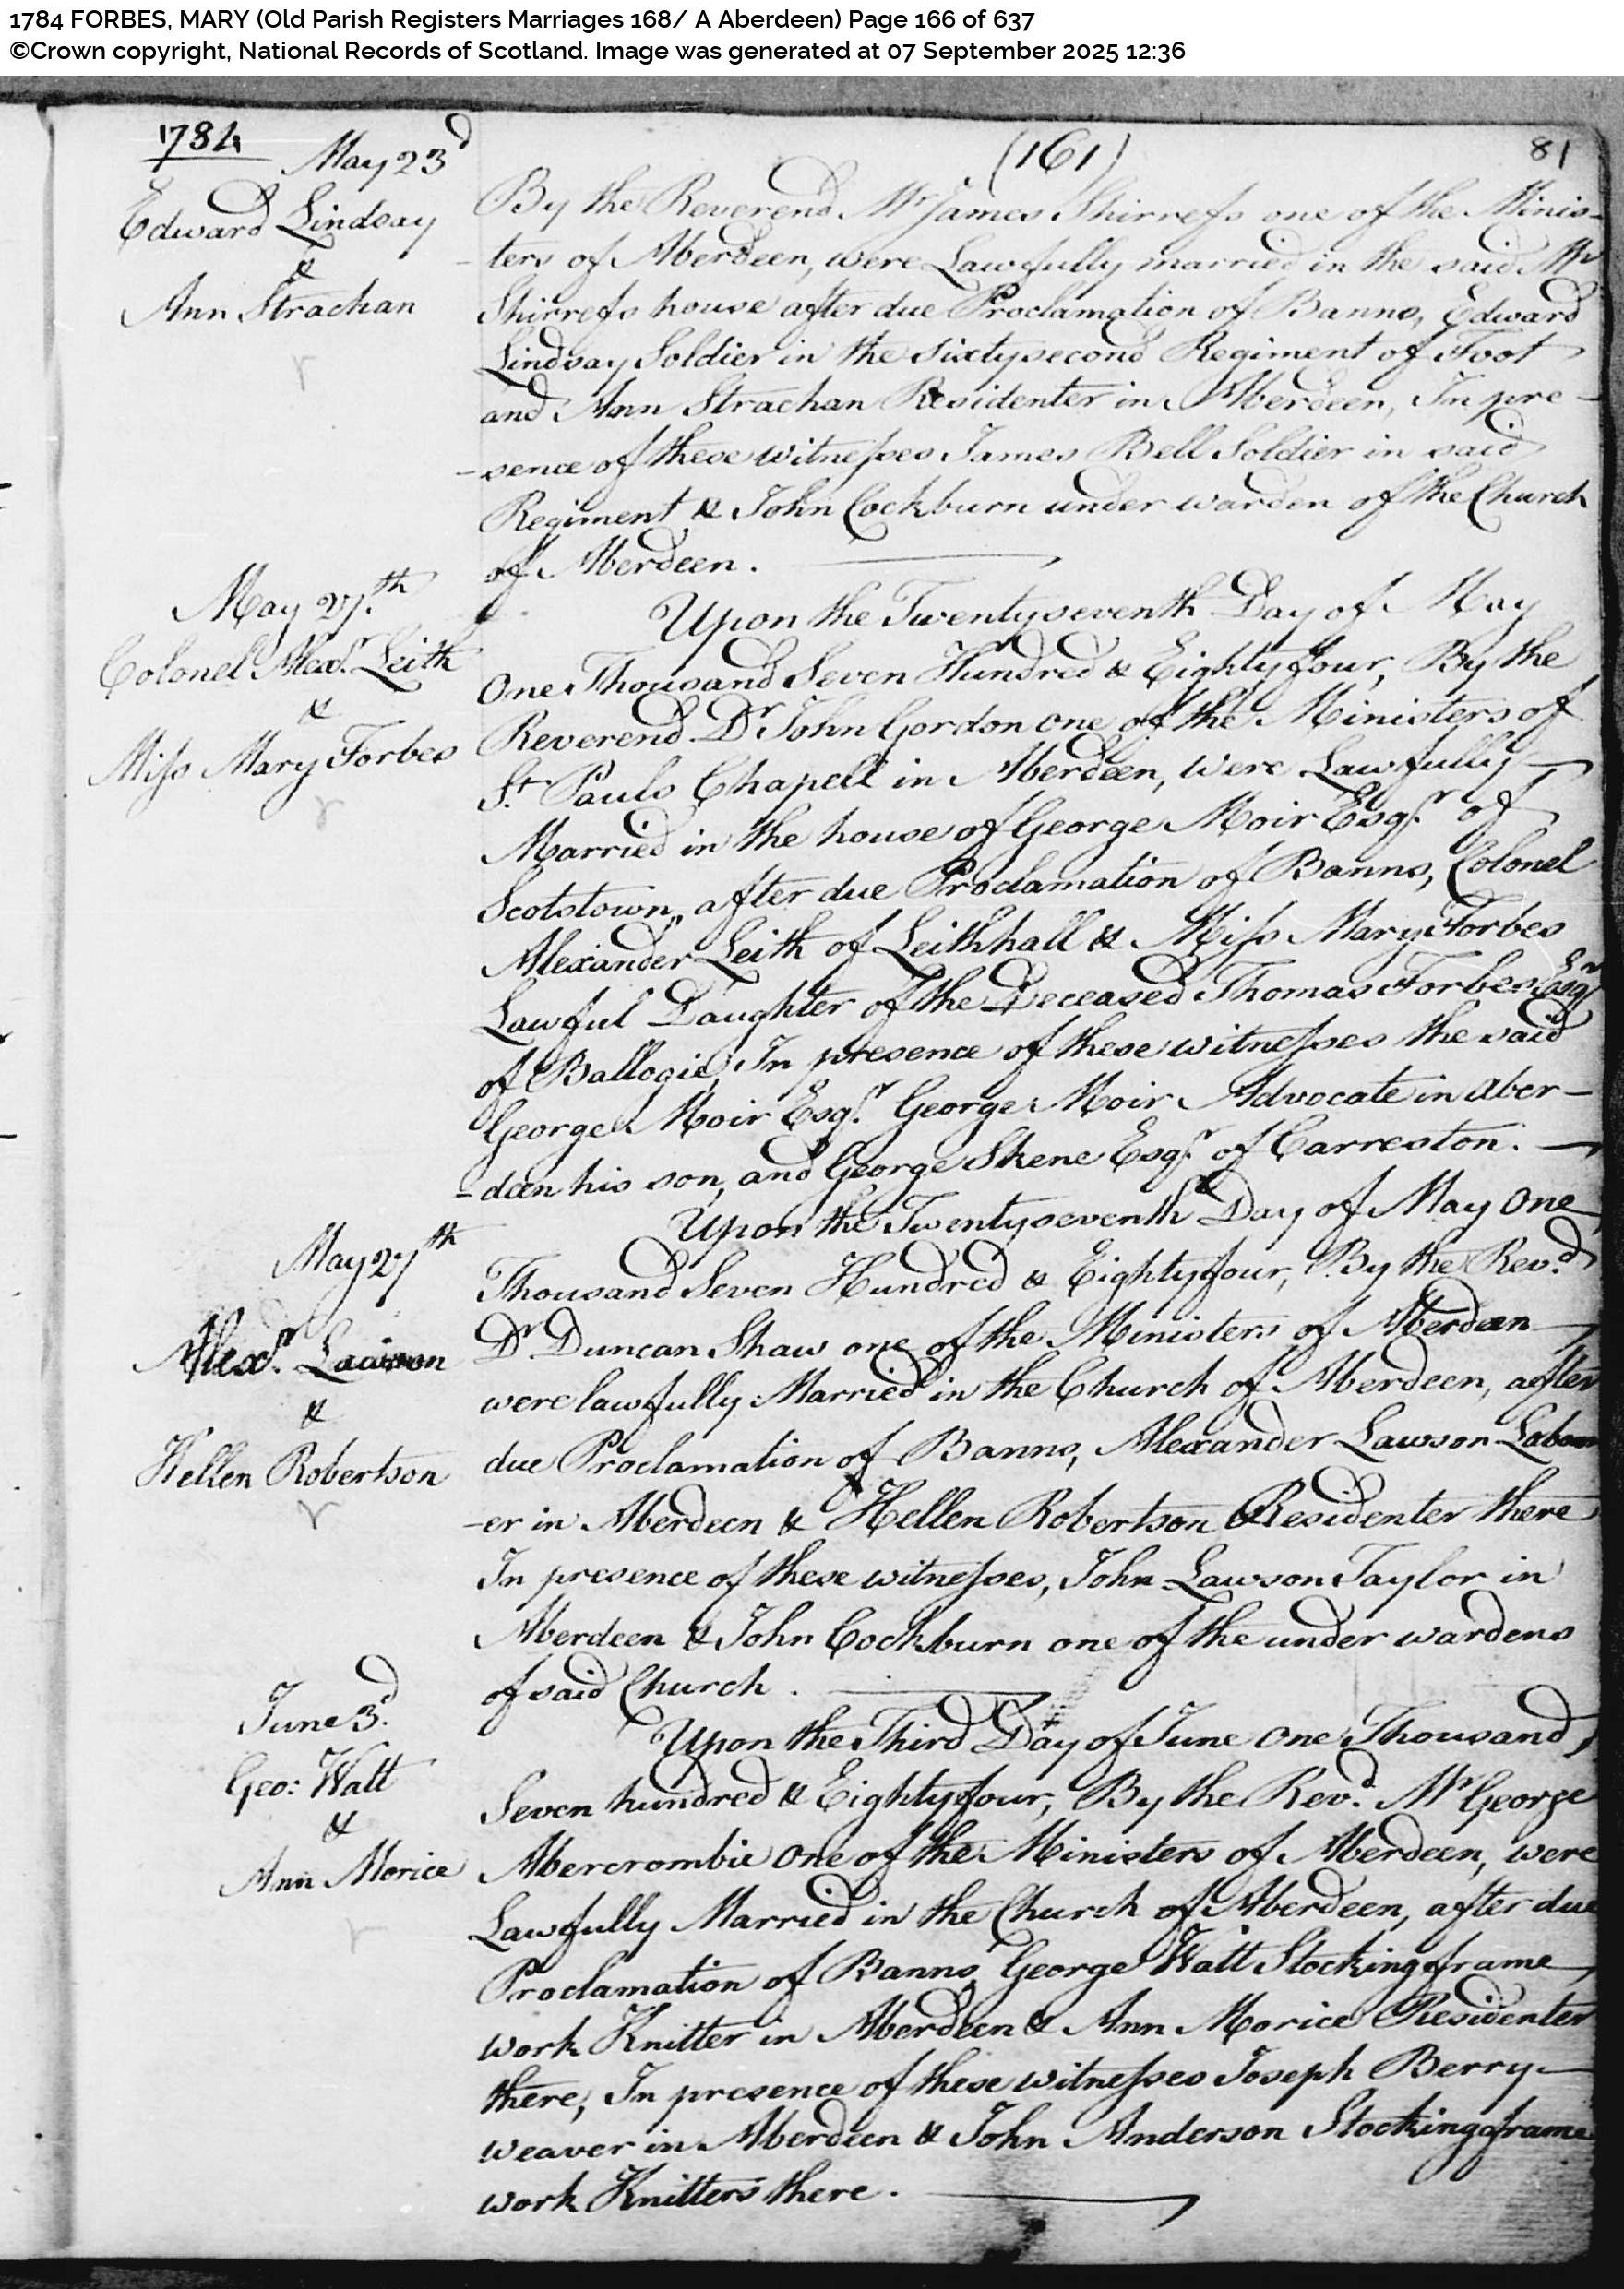 1784 FORBES, MARY (Old Parish Registers Marriages 168/ A Aberdeen) Page 166 of 637
©Crown copyright, National Records of Scotland. Image was generated at 07 September 2025 12:36
1784
(161)
81
May 23d
Edward Lindsay
&
Ann Strachan
By the Reverend Mr James Shirrefs one of the Minis-
-ters of Aberdeen, were Lawfully married in the said Mr
Shirrefs house after due Proclamation of Banns, Edward
Lindsay Soldier in the sixtysecond Regiment of Foot
and Ann Strachan Residenter in Aberdeen, In pre-
-sence of these witnesses James Bell Soldier in said
Regiment & John Cockburn under warden of the Church
of Aberdeen.
May 27.th
Colonel Alexr. Leith
&
Miss Mary Forbes
Upon the Twentyseventh Day of May
One Thousand Seven Hundred & Eightyfour, By the
Reverend Dr John Gordon one of the Ministers of
St. Pauls Chapell in Aberdeen, were Lawfully
Married in the house of George Moir Esqr. of
Scotstown, after due Proclamation of Banns, Colonel
Alexander Leith of Leithhall & Miss Mary Forbes
Lawful Daughter of the Deceased Thomas Forbes Esqr
of Ballogie, In presence of these witnesses the said
George Moir Esqr. George Moir Advocate in Aber-
-deen his son, and George Skene Esqr. of Carreston.
May 27th
Alexr. Lawson
&
Hellen Robertson
Upon the Twentyseventh Day of May One
Thousand Seven Hundred & Eightyfour, By the Revd.
Dr. Duncan Shaw one of the Ministers of Aberdeen
were lawfully Married in the Church of Aberdeen, after
due Proclamation of Banns, Alexander Lawson Labour
-er in Aberdeen & Hellen Robertson Residenter there
In presence of these witnesses, John Lawson Taylor in
Aberdeen & John Cockburn one of the under wardens
of said Church.
June 3d.
Geo: Watt
&
Ann Morice
Upon the Third Day of June One Thousand
Seven hundred & Eightyfour, By the Revd. Mr George
Abercrombie One of the Ministers of Aberdeen, were
Lawfully Married in the Church of Aberdeen, after due
Proclamation of Banns, George Watt Stockingframe
work Knitter in Aberdeen & Ann Morice Residenter
there, In presence of these witnesses Joseph Berry
weaver in Aberdeen & John Anderson Stockingframe
work Knitters there.